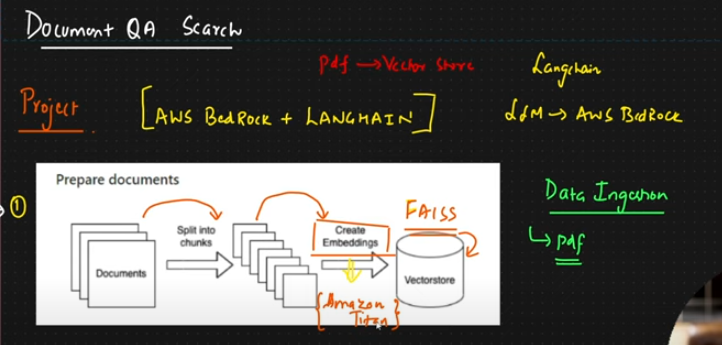 Document QA Search
Pdf → Vector Store
Langchain
Project
[AWS BedRock + LANGHAIN]
LLM → AWS BedRock
①
Prepare documents
Documents
Split into
chunks
Create
Embeddings
FAISS
Vectorstore
{Amazon
Titan}
Data Ingestion
↳ pdf